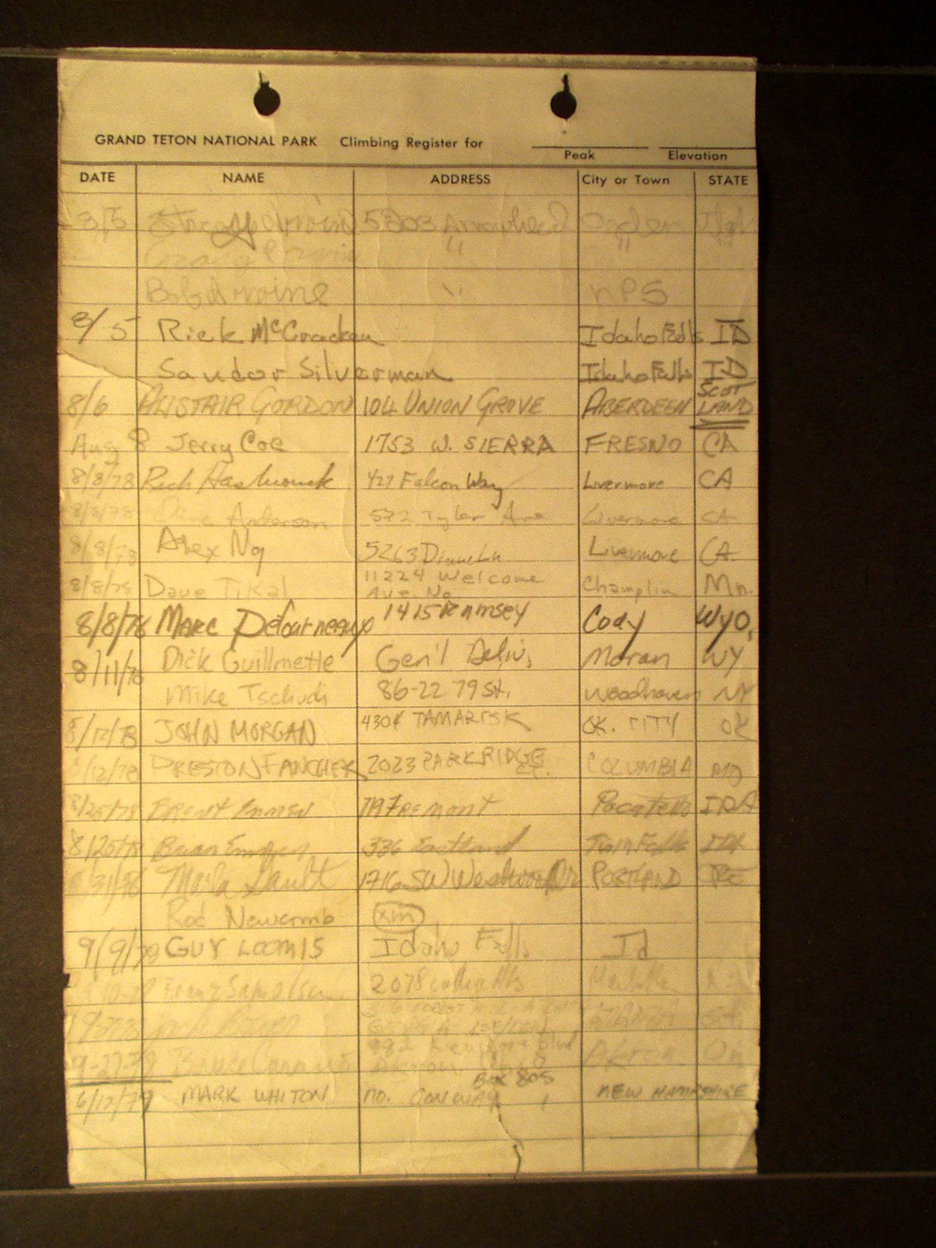 GRAND TETON NATIONAL PARK Climbing Register for
Peak Elevation
DATE NAME ADDRESS City or Town STATE
8/5 5203 Ogden
"
Bob Irvine " NPS
8/5 Rick McCracken Idaho Falls ID
Sandor Silverman Idaho Falls ID
8/6 ALISTAIR GORDON 104 UNION GROVE ABERDEEN SCOTLAND
Aug 8 Jerry Coe 1753 W. SIERRA FRESNO CA
8/8/78 Rich 427 Falcon Way Livermore CA
8/8/78 Dave Anderson 572 Tyler Ave Livermore CA
8/8/78 Alex Ng 5263 Diane Ln Livermore CA
8/8/78 Dave Tikal 11224 Welcome Ave. No. Champlin Mn.
8/8/78 Marc 1415 Rumsey Cody WYO.
8/11/78 Dick Guillmette Gen'l Deliv. Moran WY
Mike Tschudi 86-22 79 St. Woodhaven NY
8/12/78 JOHN MORGAN 4304 TAMARISK OK. CITY OK
8/12/78 PRESTON FANCHER 2023 PARKRIDGE CT. COLUMBIA MO
8/25/78 Brent 797 Fremont Pocatello IDA
8/25/78 Brian 336 Eastland Twin Falls IDA
8/31/78 1716 SW PORTLAND ORE
Rod Newcomb XM
9/9/78 GUY LOOMIS Idaho Falls Id
2078
ATLANTA GA.
9-27-78 Bruce Blvd Akron Oh
6/17/79 MARK WHITON BOX 805 no. CONWAY NEW HAMPSHIRE